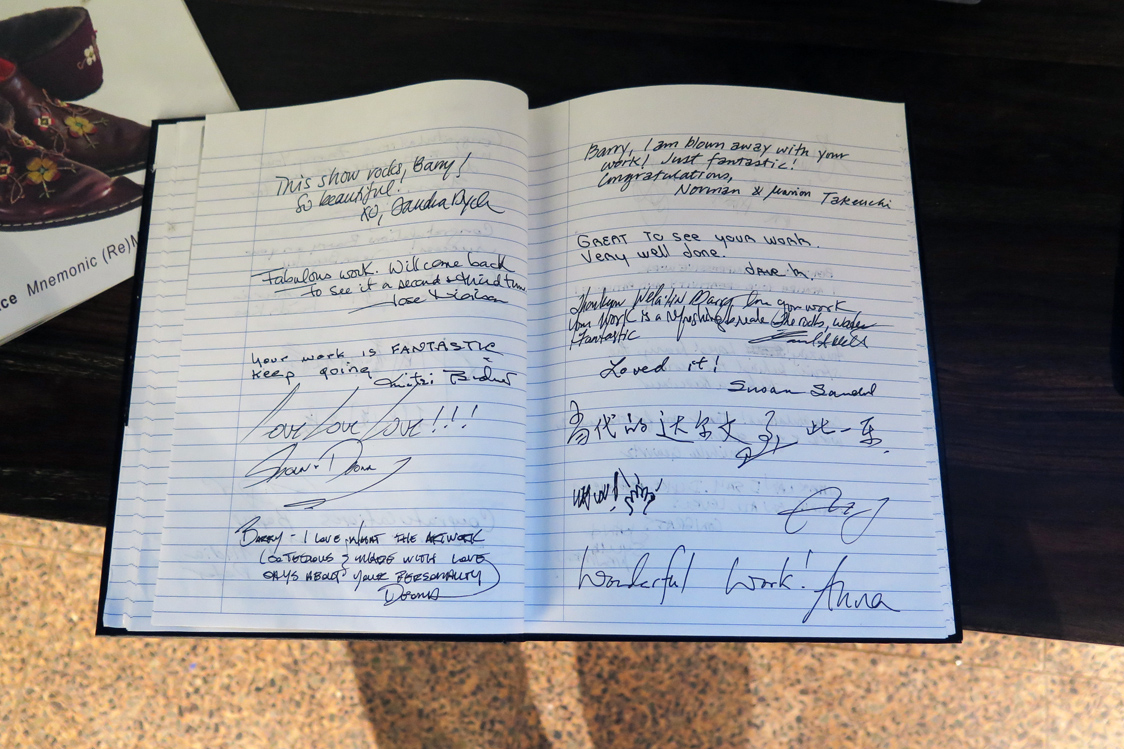 ce Mnemonic (Re)M
This show rocks, Barry!
So beautiful!
XO, Sandra Dyck
Fabulous work. Will come back
to see it a second & third time
Your work is FANTASTIC
keep going
Love Love Love!!!
Barry - I LOVE WHAT THE ARTWORK
& MADE WITH LOVE
SAYS ABOUT YOUR PERSONALITY
Donna
Barry, I am blown away with your
work! Just fantastic!
Congratulations,
Norman & Marion Takeuchi
GREAT TO see your work.
Very well done.
Dave M.
Barry your work
Your work is a refreshing
Fantastic
Loved it!
Susan
当代的达尔文 此一乐
wow!
Wonderful Work! Anna